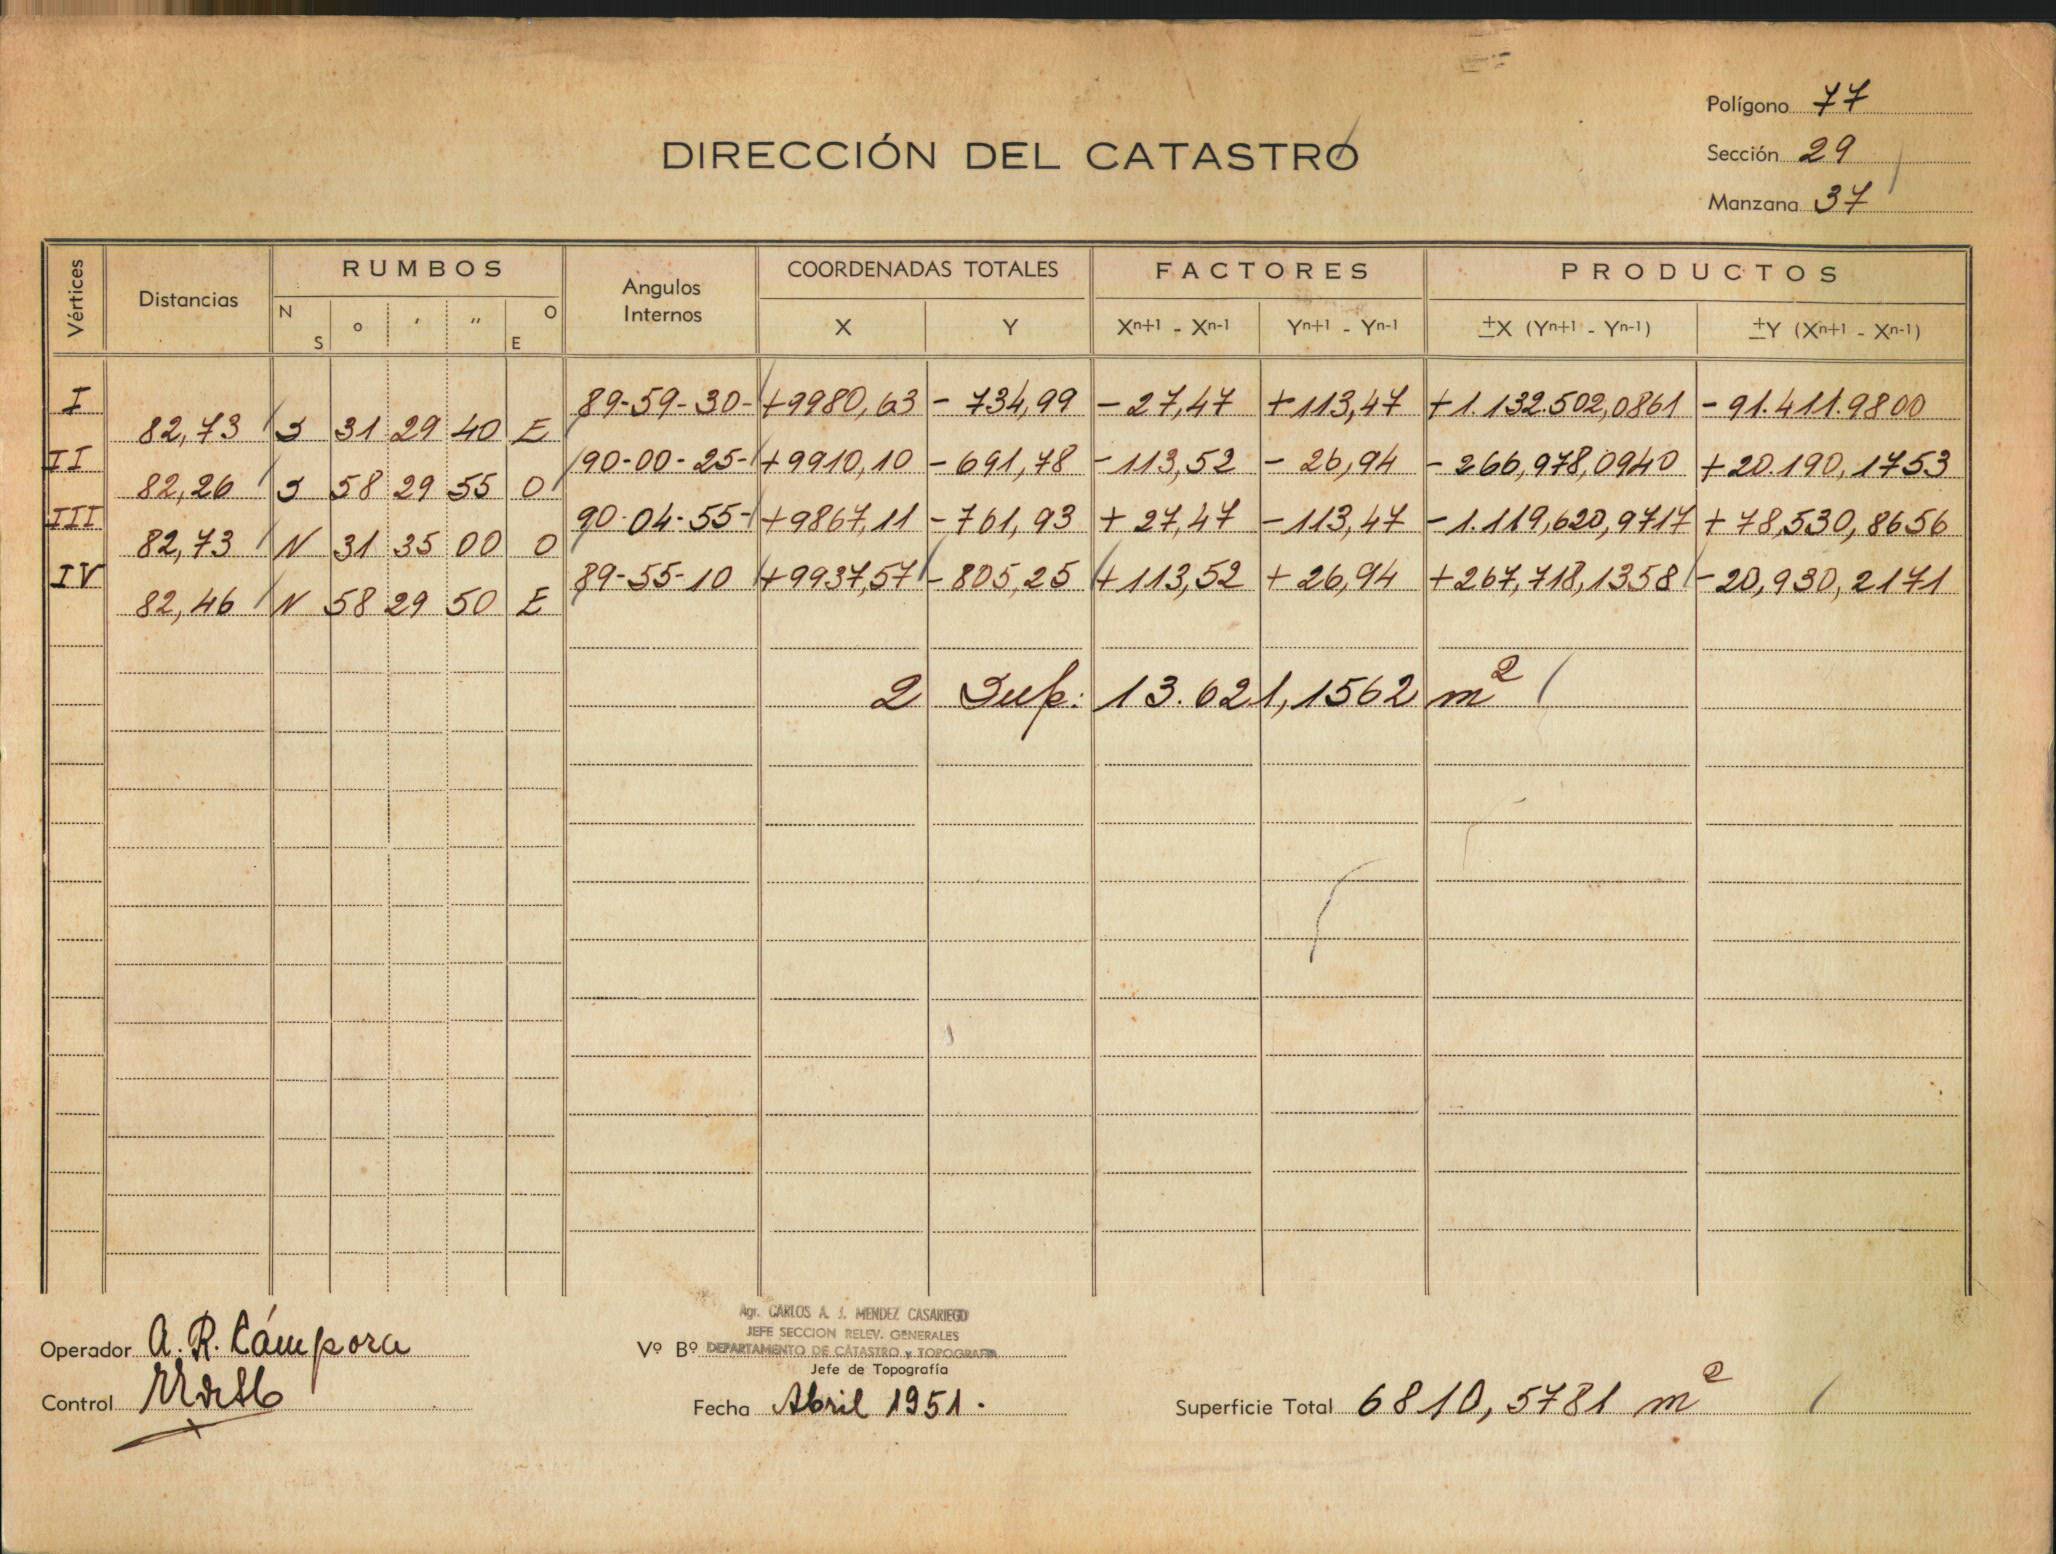 Polígono 77
DIRECCIÓN DEL CATASTRO
Sección 29
Manzana 37
Vértices Distancias RUMBOS Angulos Internos COORDENADAS TOTALES FACTORES PRODUCTOS
N S o ' '' O E X Y Xn+1 - Xn-1 Yn+1 - Yn-1 ±X (Yn+1 - Yn-1) ±Y (Xn+1 - Xn-1)
I 89-59-30- +9980,63 - 734,99 - 27,47 +113,47 +1.132.502,0861 - 91.411.9800
82,73 S 31 29 40 E
II 90-00-25- +9910,10 - 691,78 - 113,52 - 26,94 - 266,978,0940 + 20.190,1753
82,26 S 58 29 55 O
III 90-04-55- +9867,11 - 761,93 + 27,47 - 113,47 - 1.119,620,9717 + 78,530,8656
82,73 N 31 35 00 O
IV 89-55-10 +9937,57 - 805,25 + 113,52 + 26,94 +267,718,1358 - 20,930,2171
82,46 N 58 29 50 E
2 Sup: 13.621,1562 m²
Agr. CARLOS A. J. MENDEZ CASARIEGO
JEFE SECCION RELEV. GENERALES
Operador A. R. Cámpora Vº Bº DEPARTAMENTO DE CATASTRO y TOPOGRAFIA
Jefe de Topografía
Control
Fecha Abril 1951. Superficie Total 6810,5781 m²